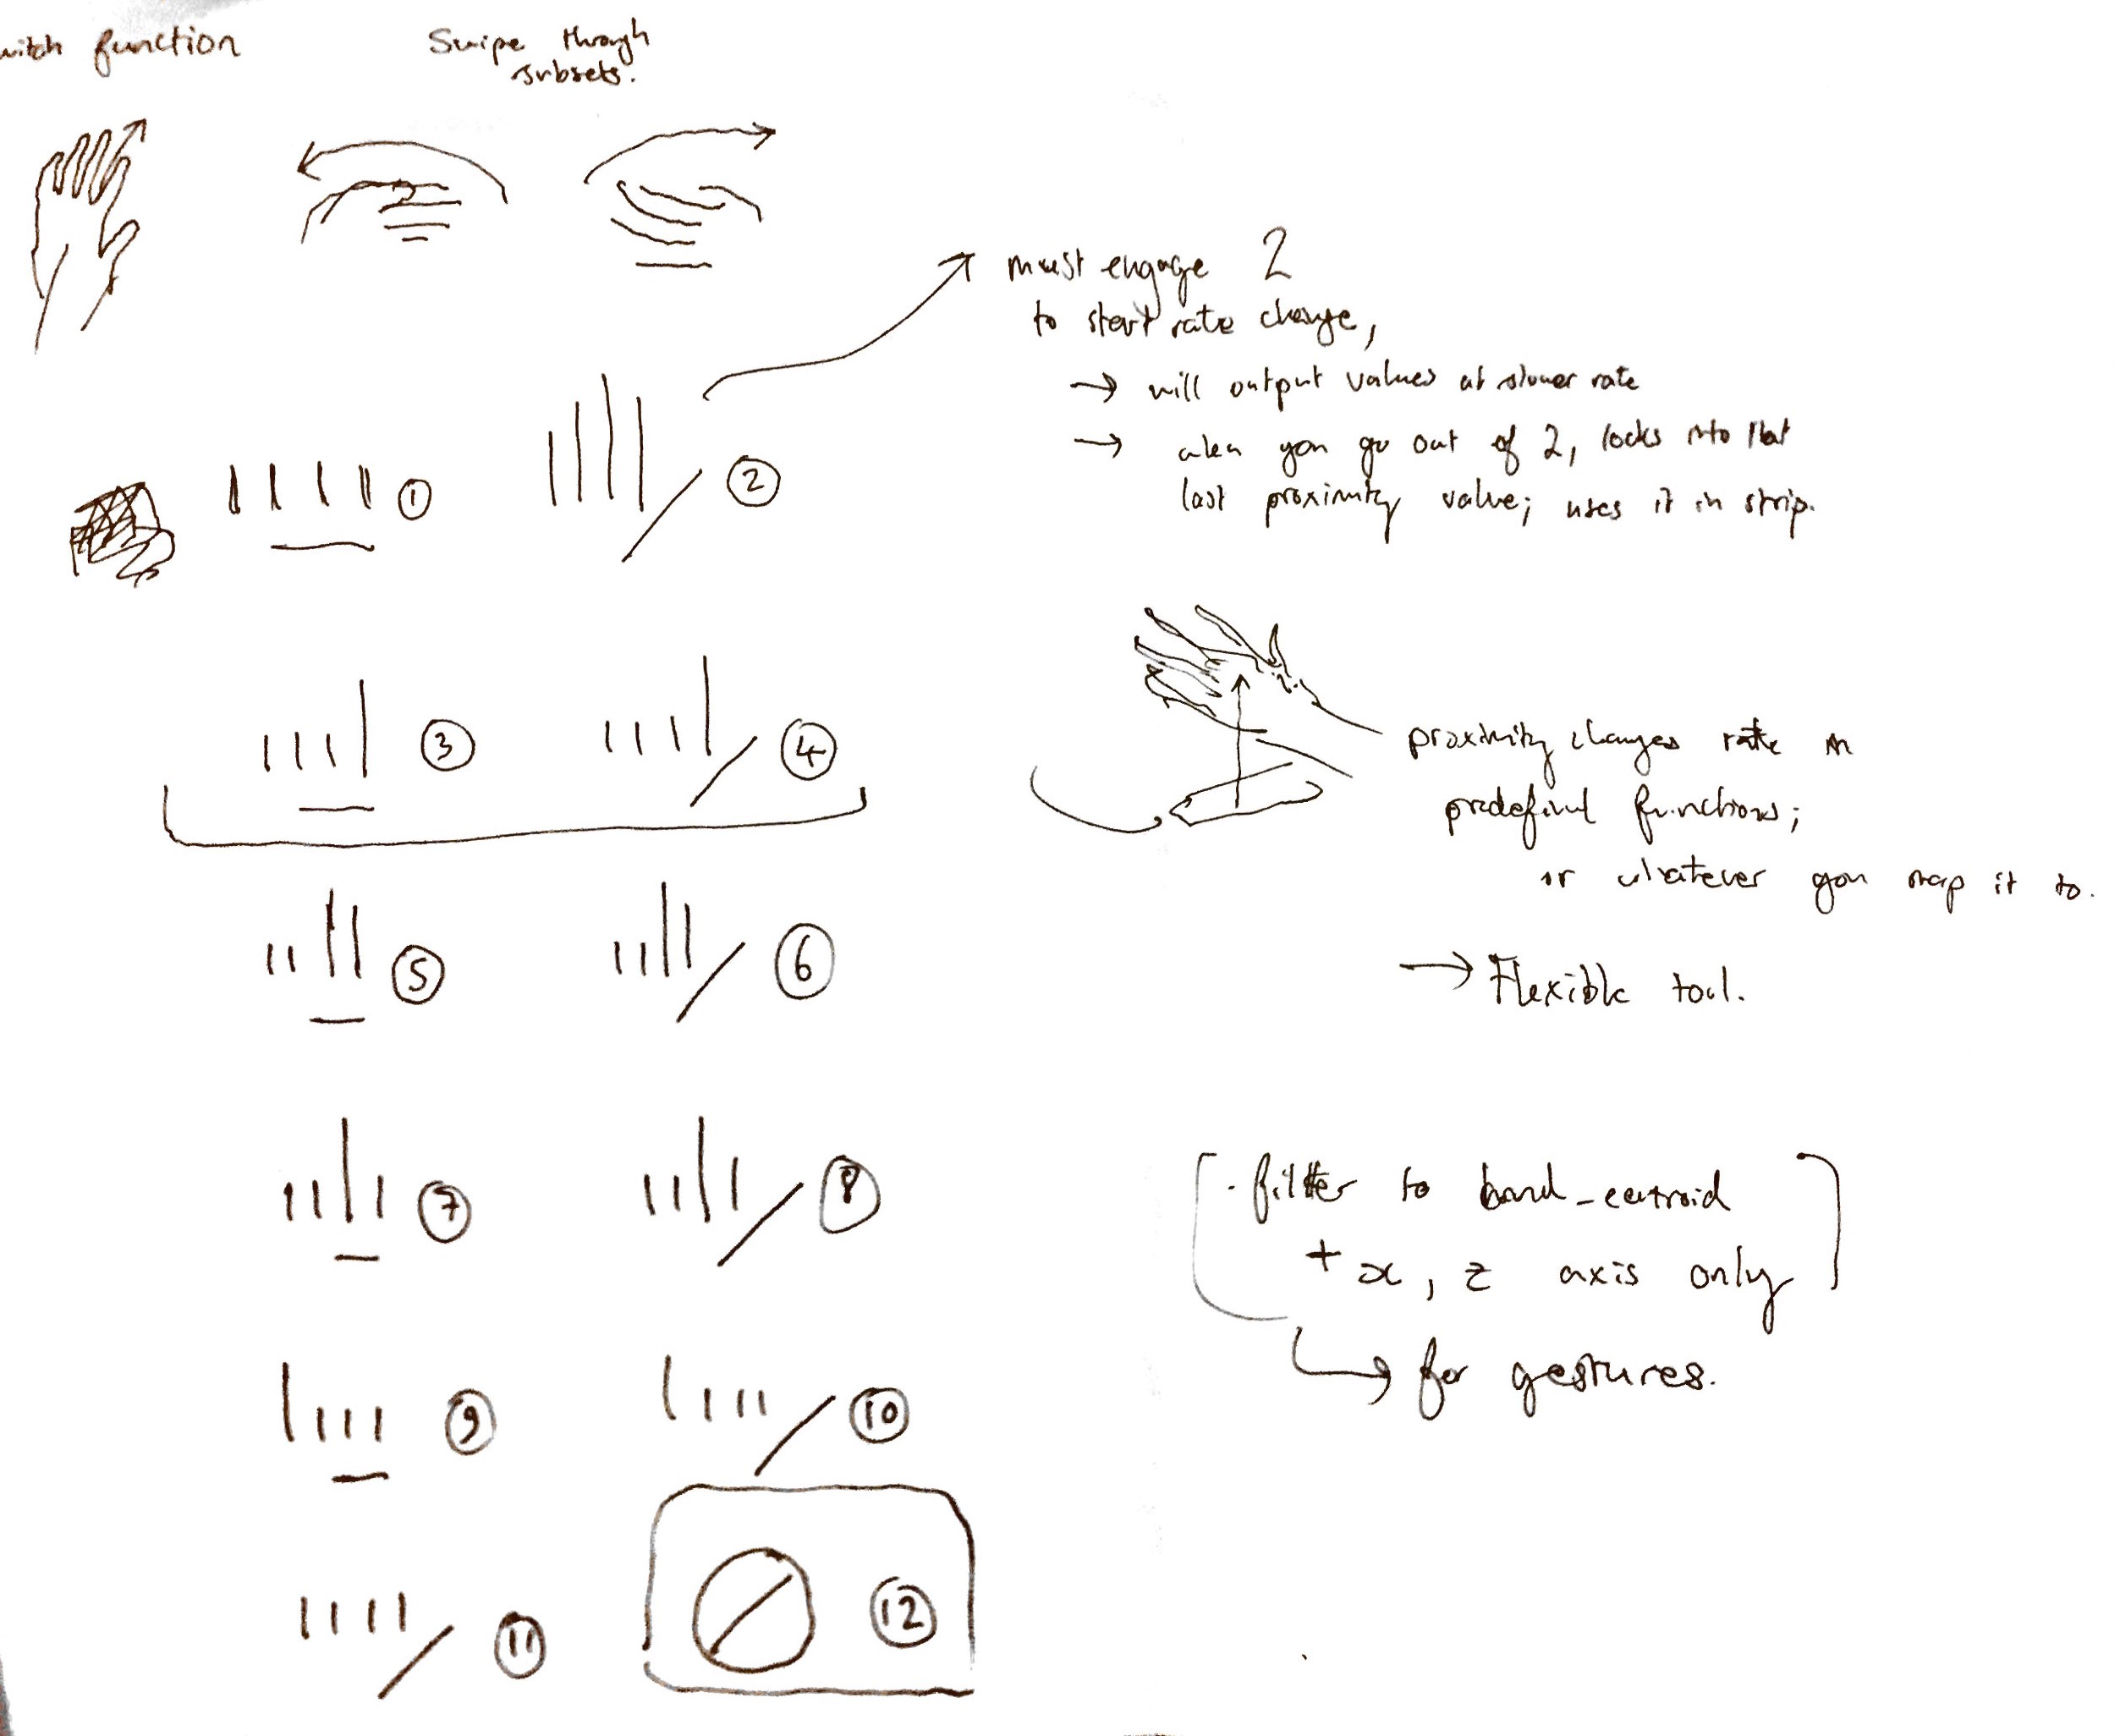 function
Swipe through
subsets.
must engage 2
to start rate change,
→ will output values at slower rate
→ when you go out of 2, locks into that
last proximity value; uses it in strip.
①
②
③
④
proximity changes rate in
predefined functions;
or whatever you map it to.
⑤
⑥
→ Flexible tool.
⑦
⑧
· filter to hand_centroid
+ x, z axis only
↳ for gestures.
⑨
⑩
⑪
⑫